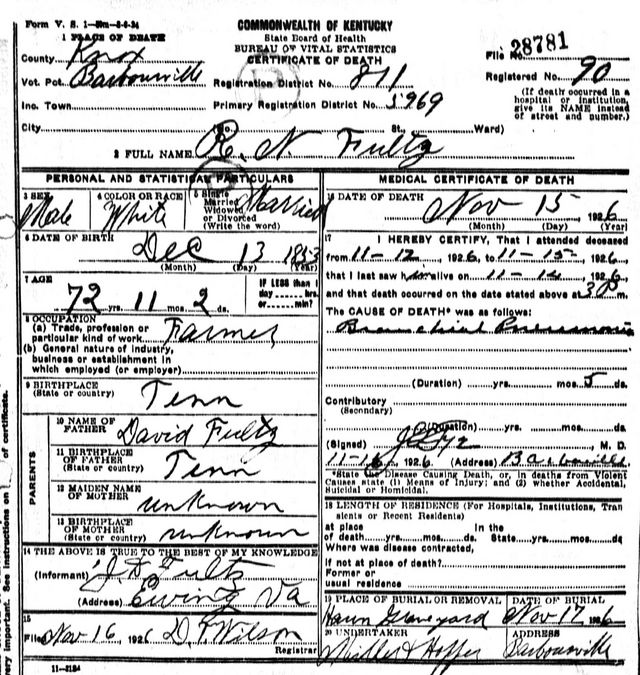 Form V. S. 1
COMMONWEALTH OF KENTUCKY
State Board of Health
BUREAU OF VITAL STATISTICS
CERTIFICATE OF DEATH
1 PLACE OF DEATH
County Knox
File No. 28781
Vot. Pct. Barbourville
Registration District No. 811
Registered No. 90
Inc. Town
Primary Registration District No. 5969
(If death occurred in a
hospital or institution,
give its NAME instead
of street and number.)
City (No. St., Ward)
2 FULL NAME R. N. Fultz
PERSONAL AND STATISTICAL PARTICULARS
3 SEX Male
4 COLOR OR RACE White
5 Single Married Widowed or Divorced (Write the word) Married
6 DATE OF BIRTH Dec 13 1853
(Month) (Day) (Year)
7 AGE
72 yrs. 11 mos. 2 ds.
IF LESS than 1
day hrs.
or min?
8 OCCUPATION
(a) Trade, profession or
particular kind of work Farmer
(b) General nature of industry,
business or establishment in
which employed (or employer)
9 BIRTHPLACE
(State or country) Tenn
PARENTS
10 NAME OF
FATHER David Fultz
11 BIRTHPLACE
OF FATHER
(State or country) Tenn
12 MAIDEN NAME
OF MOTHER unknown
13 BIRTHPLACE
OF MOTHER
(State or country) unknown
14 THE ABOVE IS TRUE TO THE BEST OF MY KNOWLEDGE
(Informant) J. D. Fultz
(Address) Ewing Va
15
Filed Nov 16, 1926 Wilson
Registrar
11-3184
MEDICAL CERTIFICATE OF DEATH
16 DATE OF DEATH Nov 15, 1926
(Month) (Day) (Year)
17 I HEREBY CERTIFY, That I attended deceased
from 11-12, 1926, to 11-15, 1926,
that I last saw h alive on 11-14, 1926,
and that death occurred on the date stated above at m.
The CAUSE OF DEATH* was as follows:
Bronchial Pneumonia
(Duration) yrs. mos. 5 ds.
Contributory
(Secondary)
(Duration) yrs. mos. ds.
(Signed) M. D.
11-16, 1926 (Address) Barbourville
*State the Disease Causing Death, or, in deaths from Violent
Causes state (1) Means of Injury; and (2) whether Accidental,
Suicidal or Homicidal.
18 LENGTH OF RESIDENCE (For Hospitals, Institutions, Tran
sients or Recent Residents)
at place In the
of death yrs. mos. ds. State yrs. mos. ds.
Where was disease contracted,
if not at place of death?
Former or
usual residence
19 PLACE OF BURIAL OR REMOVAL DATE OF BURIAL
Graveyard Nov 17 1926
20 UNDERTAKER ADDRESS
Barbourville
very important. See instructions on of certificate.